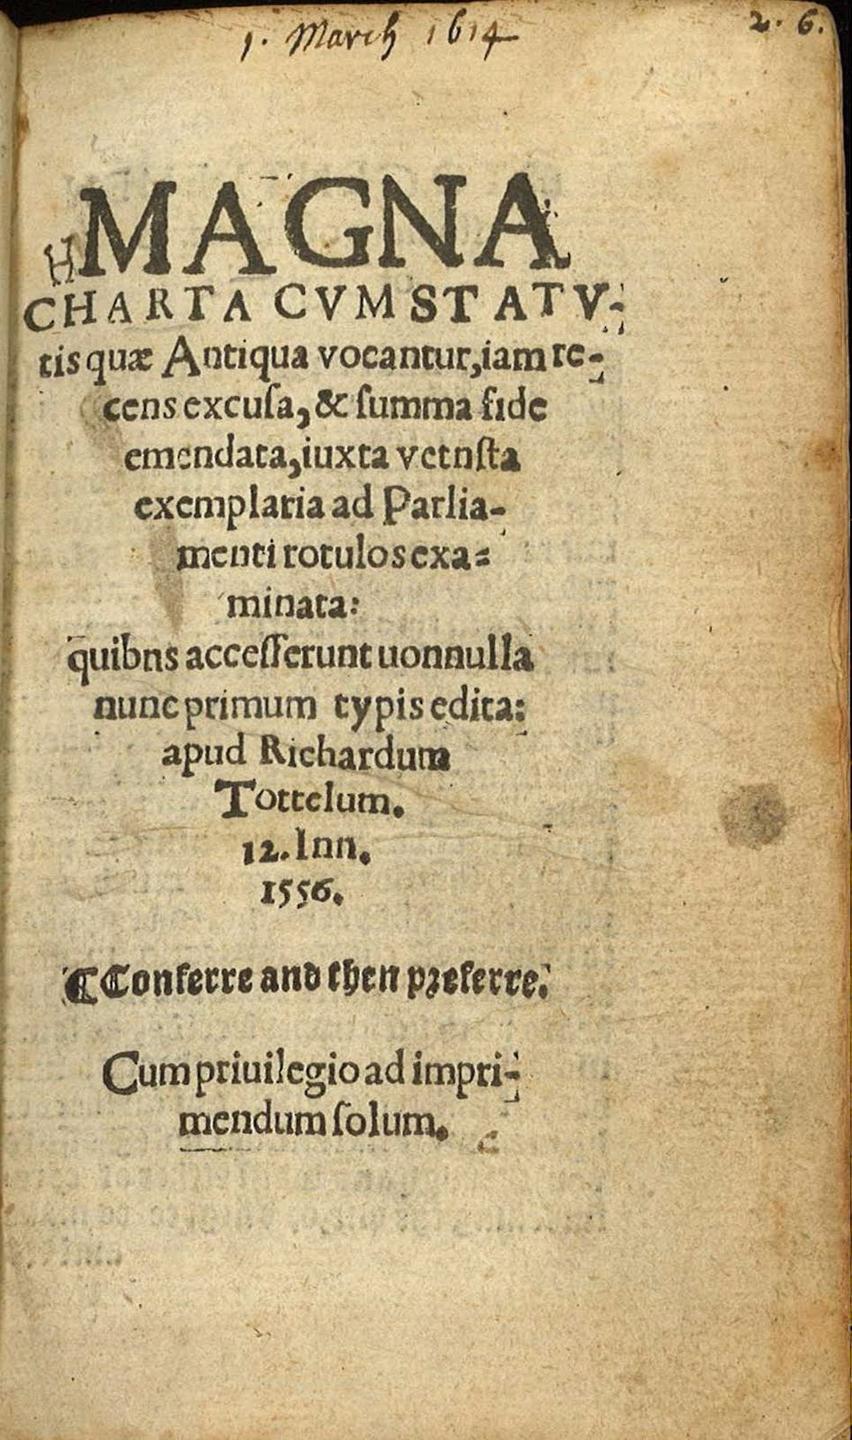 1. March 1614
2. 6.
H
MAGNA
CHARTA CVM STATV-
tis quæ Antiqua vocantur, iam re-
cens excusa, & summa fide
emendata, iuxta vetnsta
exemplaria ad Parlia-
menti rotulos exa-
minata:
quibns accesserunt uonnulla
nunc primum typis edita:
apud Richardum
Tottelum.
12. Inn.
1556.
¶Conferre and then preferre.
Cum priuilegio ad impri-
mendum solum.